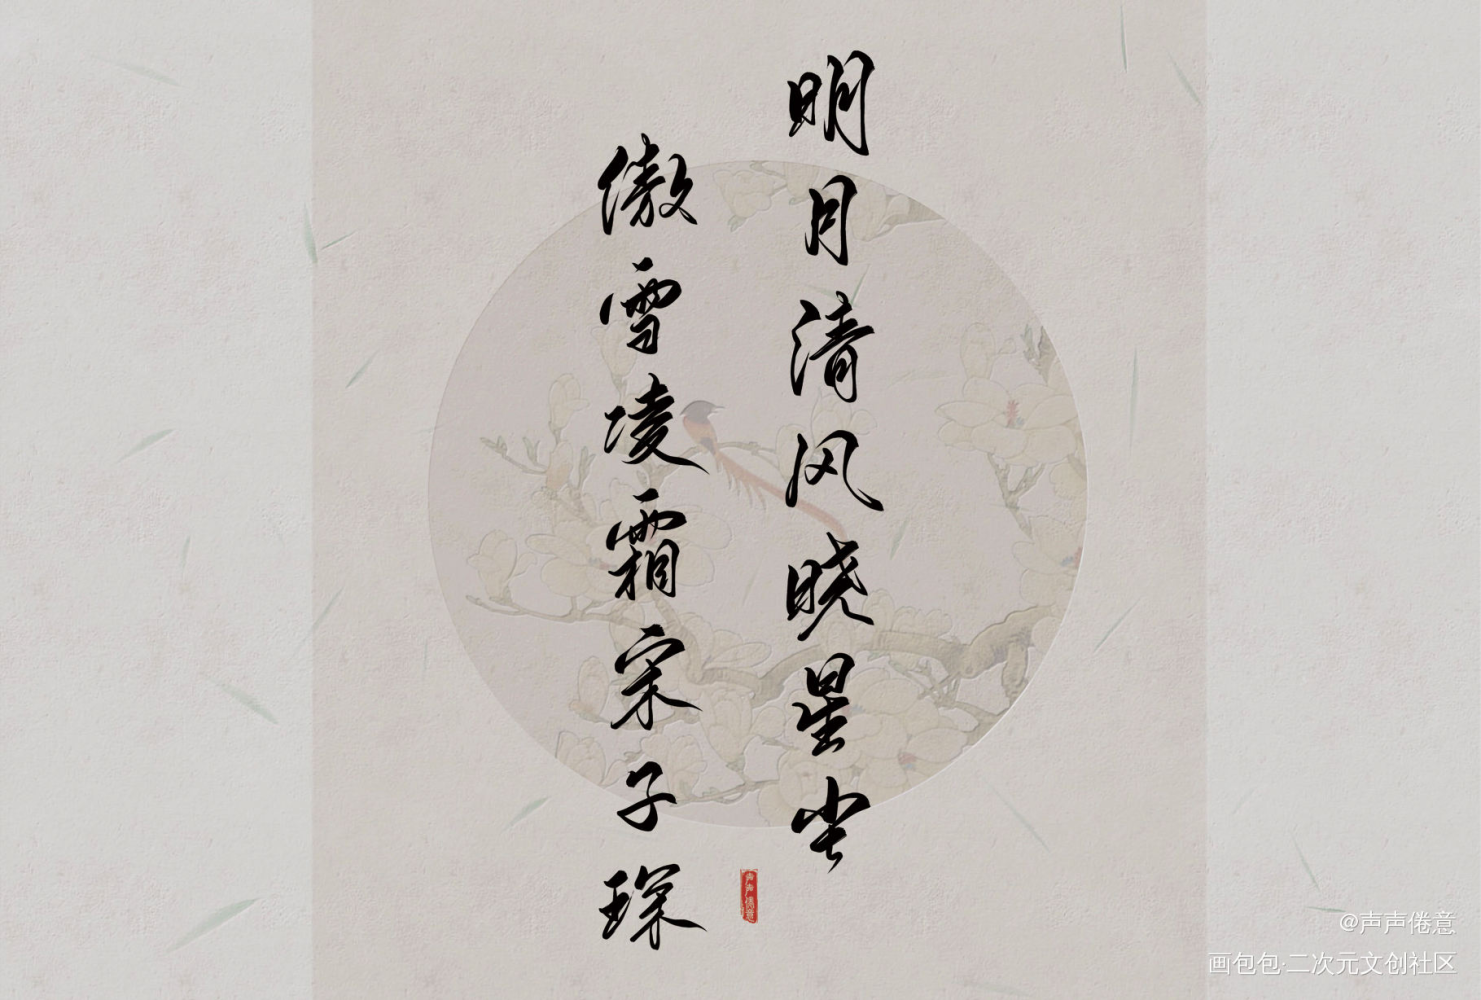 明月清风晓星尘
傲雪凌霜宋子琛
声声倦意
@声声倦意
画包包·二次元文创社区